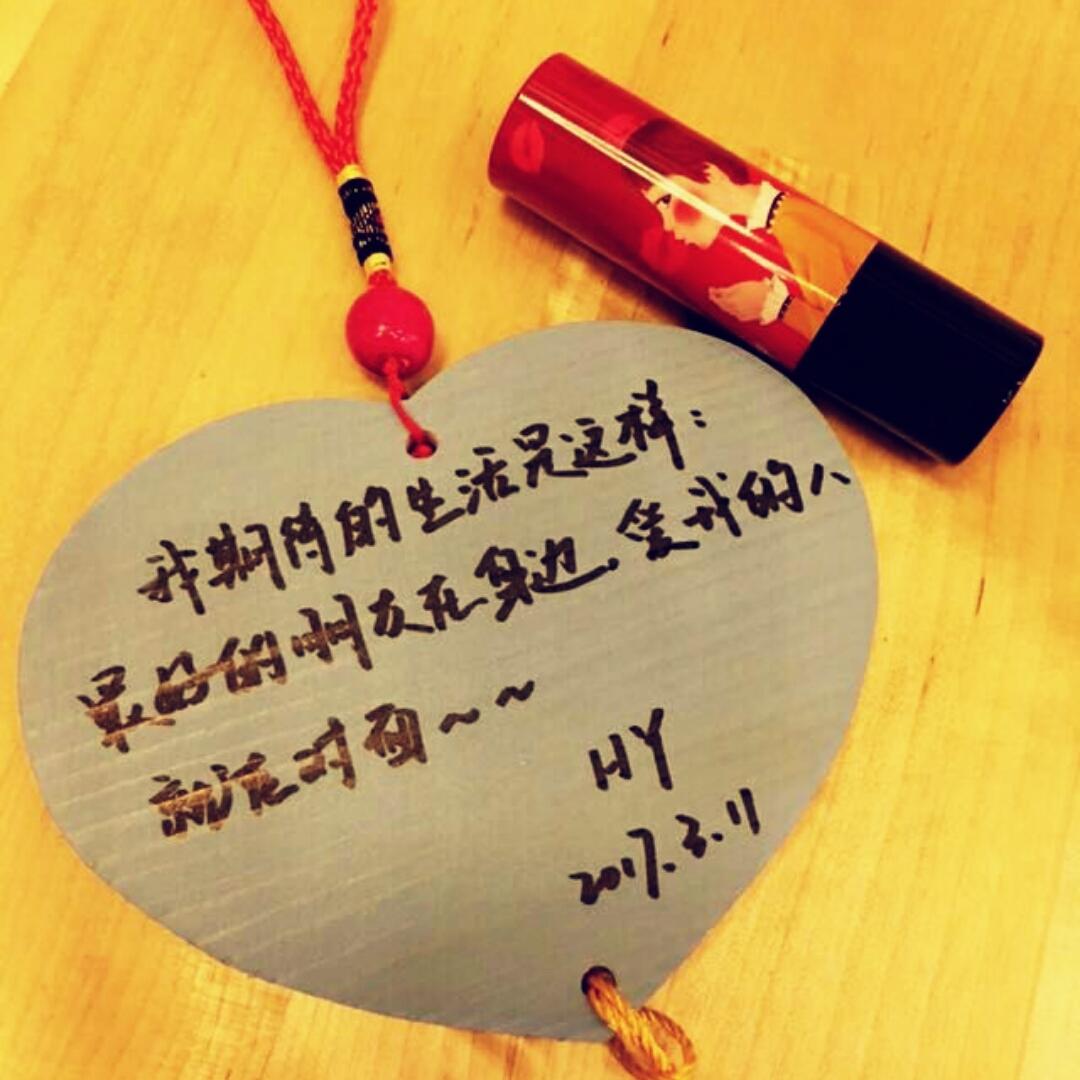 我期待的生活是这样：
最好的朋友在身边，爱我的人
就在对面~~
HY
2017.3.11